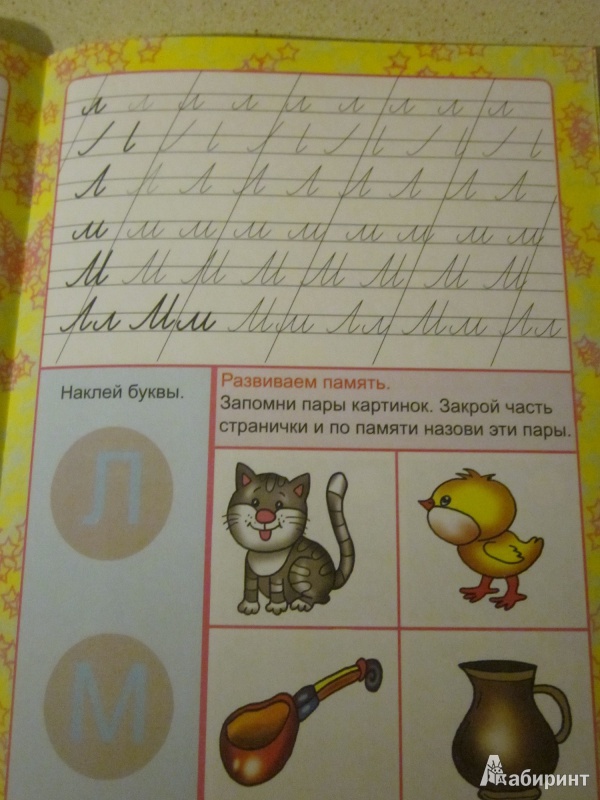 л л л л л л л л л
Л Л Л Л Л Л Л Л Л
м м м м м м м м м
М М М М М М М М
Лл Мм Мм Лл Мм Лл
Наклей буквы.
Л
М
Развиваем память.
Запомни пары картинок. Закрой часть
странички и по памяти назови эти пары.
Лабиринт